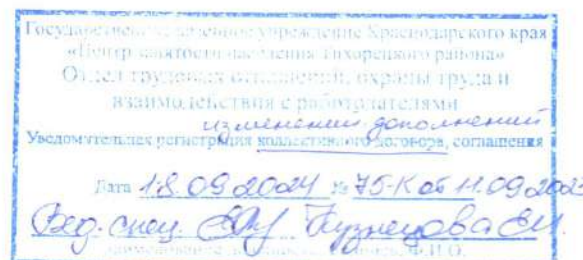 Государственное казенное учреждение Краснодарского края
«Центр занятости населения Тихорецкого района»
Отдел трудовых отношений, охраны труда и
взаимодействия с работодателями
изменений дополнений
Уведомительная регистрация коллективного договора, соглашения
Дата 18.09.2024 № 75-К от 11.09.202
Вед. спец. Кузнецова Е.И.
Ф.И.О.